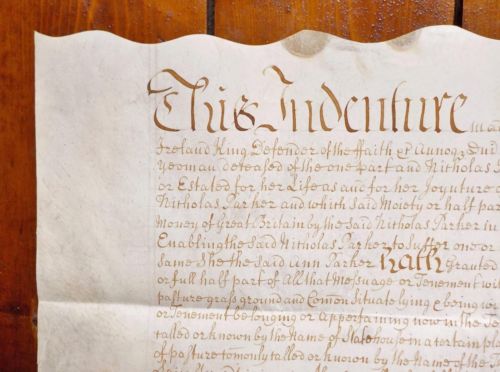 This Indenture
Ireland King Defender of the ffaith &c Annoq Dni
Yeoman deceased of the one part and Nicholas
or Estated for her Life as and for her Joynture
Nicholas Parker and which said Moiety or half par
Money of Great Britain by the said Nicholas Parker in
Enabling the said Nicholas Parker to Suffer one or
same She the said Ann Parker Hath Granted
or full half part of All that Messuage or Tenement
pasture grass ground and Comon Situate lying & being
or Tenement belonging or Appertaining now in the
called or known by the Name of Slatehouse in a certain
of pasture comonly called or known by the Name of the